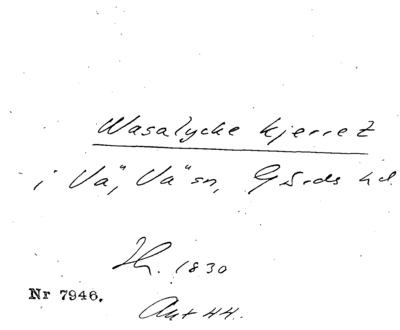 Wasalycke kjerret
i Vä, Vä sn, Gärds hd
Th. 1830
Nr 7946.
Akt 44.